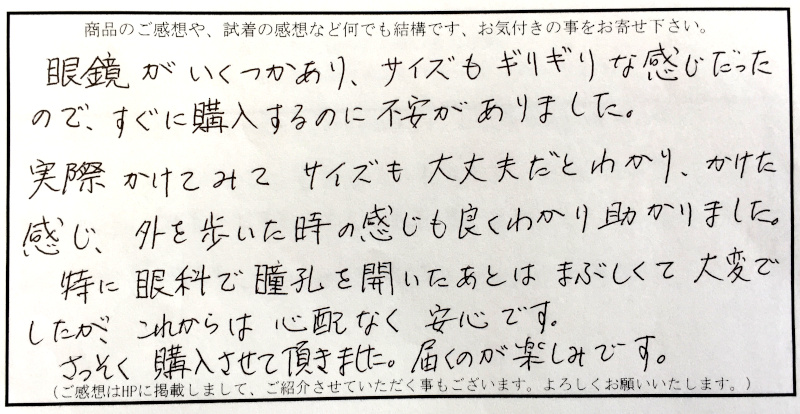 商品のご感想や、試着の感想など何でも結構です、お気付きの事をお寄せ下さい。
眼鏡がいくつかあり、サイズもギリギリな感じだった
ので、すぐに購入するのに不安がありました。
実際かけてみて サイズも大丈夫だとわかり、かけた
感じ、外を歩いた時の感じも良くわかり助かりました。
特に眼科で瞳孔を開いたあとは まぶしくて大変で
したが、これからは 心配なく 安心です。
さっそく購入させて頂きました。届くのが楽しみです。
(ご感想はHPに掲載しまして、ご紹介させていただく事もございます。よろしくお願いいたします。)